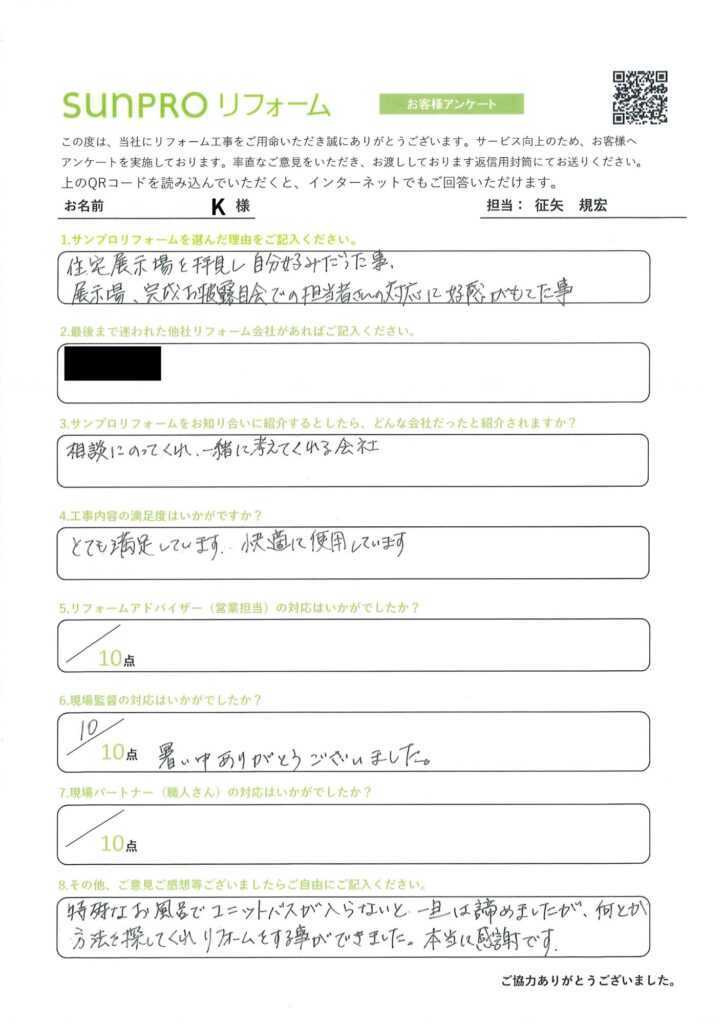 sunpro リフォーム
お客様アンケート
この度は、当社にリフォーム工事をご用命いただき誠にありがとうございます。サービス向上のため、お客様へ
アンケートを実施しております。率直なご意見をいただき、お渡ししております返信用封筒にてお送りください。
上のQRコードを読み込んでいただくと、インターネットでもご回答いただけます。
お名前 K 様 担当： 征矢 規宏
1.サンプロリフォームを選んだ理由をご記入ください。
住宅展示場を拝見し自分好みだった事、
展示場、完成お披露目会での担当者さんの対応に好感がもてた事
2.最後まで迷われた他社リフォーム会社があればご記入ください。
3.サンプロリフォームをお知り合いに紹介するとしたら、どんな会社だったと紹介されますか？
相談にのってくれ、一緒に考えてくれる会社
4.工事内容の満足度はいかがですか？
とても満足しています。快適に使用しています
5.リフォームアドバイザー（営業担当）の対応はいかがでしたか？
／10点
6.現場監督の対応はいかがでしたか？
10／10点 暑い中ありがとうございました。
7.現場パートナー（職人さん）の対応はいかがでしたか？
／10点
8.その他、ご意見ご感想等ございましたらご自由にご記入ください。
特殊なお風呂でユニットバスが入らないと一旦は諦めましたが、何とか
方法を探してくれリフォームをする事ができました。本当に感謝です。
ご協力ありがとうございました。